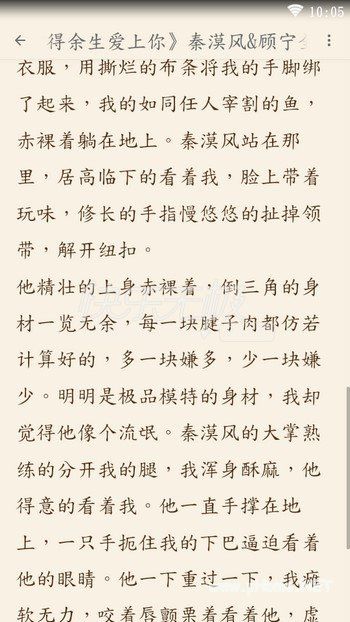 10:05
得余生爱上你》秦漠风&顾宁
衣服，用撕烂的布条将我的手脚绑
了起来，我的如同任人宰割的鱼，
赤裸着躺在地上。秦漠风站在那
里，居高临下的看着我，脸上带着
玩味，修长的手指慢悠悠的扯掉领
带，解开纽扣。
他精壮的上身赤裸着，倒三角的身
材一览无余，每一块腱子肉都仿若
计算好的，多一块嫌多，少一块嫌
少。明明是极品模特的身材，我却
觉得他像个流氓。秦漠风的大掌熟
练的分开我的腿，我浑身酥麻，他
得意的看着我。他一直手撑在地
上，一只手扼住我的下巴逼迫看着
他的眼睛。他一下重过一下，我瘫
软无力，咬着唇颤栗着看着他，虚